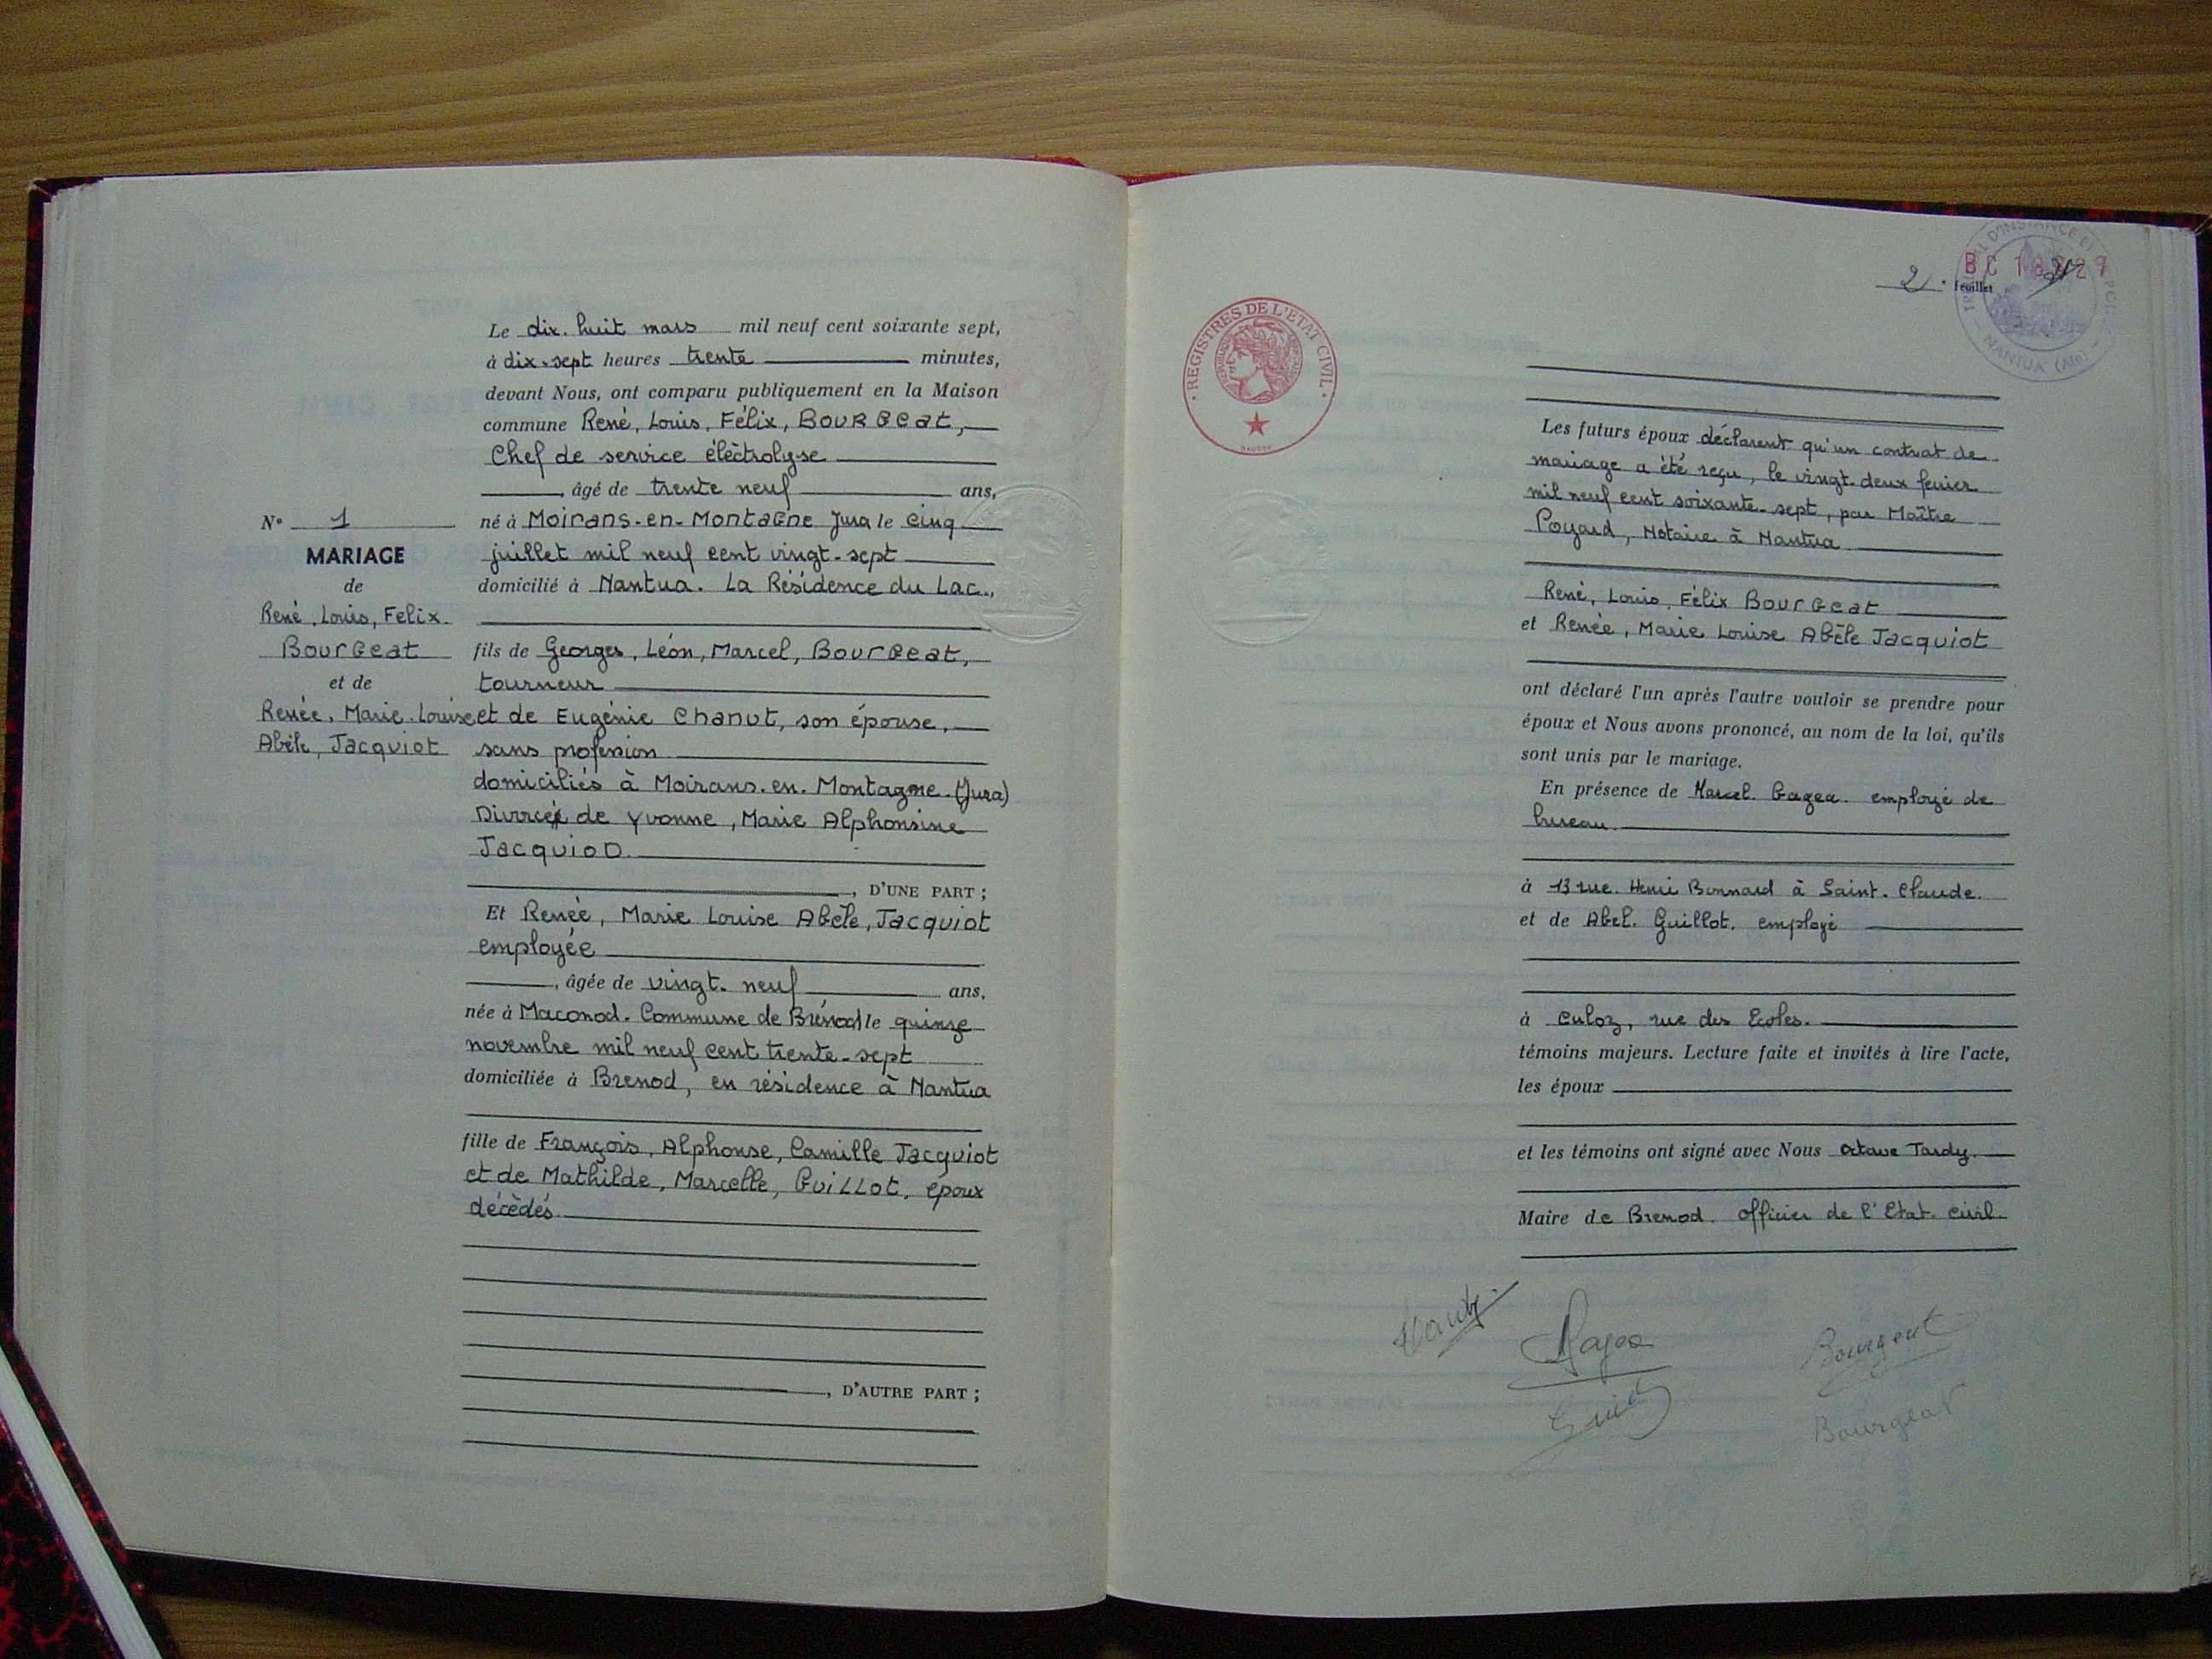 Le dix. huit mars mil neuf cent soixante sept,
à dix-sept heures trente minutes,
devant Nous, ont comparu publiquement en la Maison
commune René, Louis, Félix, BOURGEAT,
Chef de service éléctrolyse
, âgé de trente neuf ans,
né à Moirans-en-Montagne Jura le cinq
juillet mil neuf cent vingt-sept
domicilié à Nantua. La Résidence du Lac.,
fils de Georges, Léon, Marcel, Bourgeat,
tourneur
et de Eugénie Chanut, son épouse,
sans profession
domiciliés à Moirans.en.Montagne.(Jura)
de Yvonne, Marie Alphonsine
Jacquiod.
, D'UNE PART ;
Et Renée, Marie Louise Abèle, Jacquiot
employée
, âgée de vingt. neuf ans,
née à Maconod. Commune de Brénod le quinze
novembre mil neuf cent trente-sept
domiciliée à Brenod, en résidence à Nantua
fille de François, Alphonse, Camille Jacquiot
et de Mathilde, Marcelle, Guillot, époux
décèdés.
, D'AUTRE PART ;
N° 1
MARIAGE
de
René, Louis, Felix.
Bourgeat
et de
Renée, Marie.Louise
Abèle, Jacquiot
2. feuillet
REGISTRES DE L'ETAT CIVIL
NANTUA (Ain)
Les futurs époux déclarent qu'un contrat de
mariage a été reçu, le vingt-deux fevier
mil neuf cent soixante-sept, par Maître
Poyard, Notaire à Nantua
René, Louis, Félix Bourgeat
et Renée, Marie Louise Abèle Jacquiot
ont déclaré l'un après l'autre vouloir se prendre pour
époux et Nous avons prononcé, au nom de la loi, qu'ils
sont unis par le mariage.
En présence de Marcel. Gagea. employé de
bureau.
à 13 rue. Henri Bonnard à Saint. Claude.
et de Abel. Guillot. employé
à Culoz, rue des Ecoles.
témoins majeurs. Lecture faite et invités à lire l'acte,
les époux
et les témoins ont signé avec Nous Octave Tardy.
Maire de Brenod. Officier de l'Etat. civil.
Bourgeat
Bourgeat